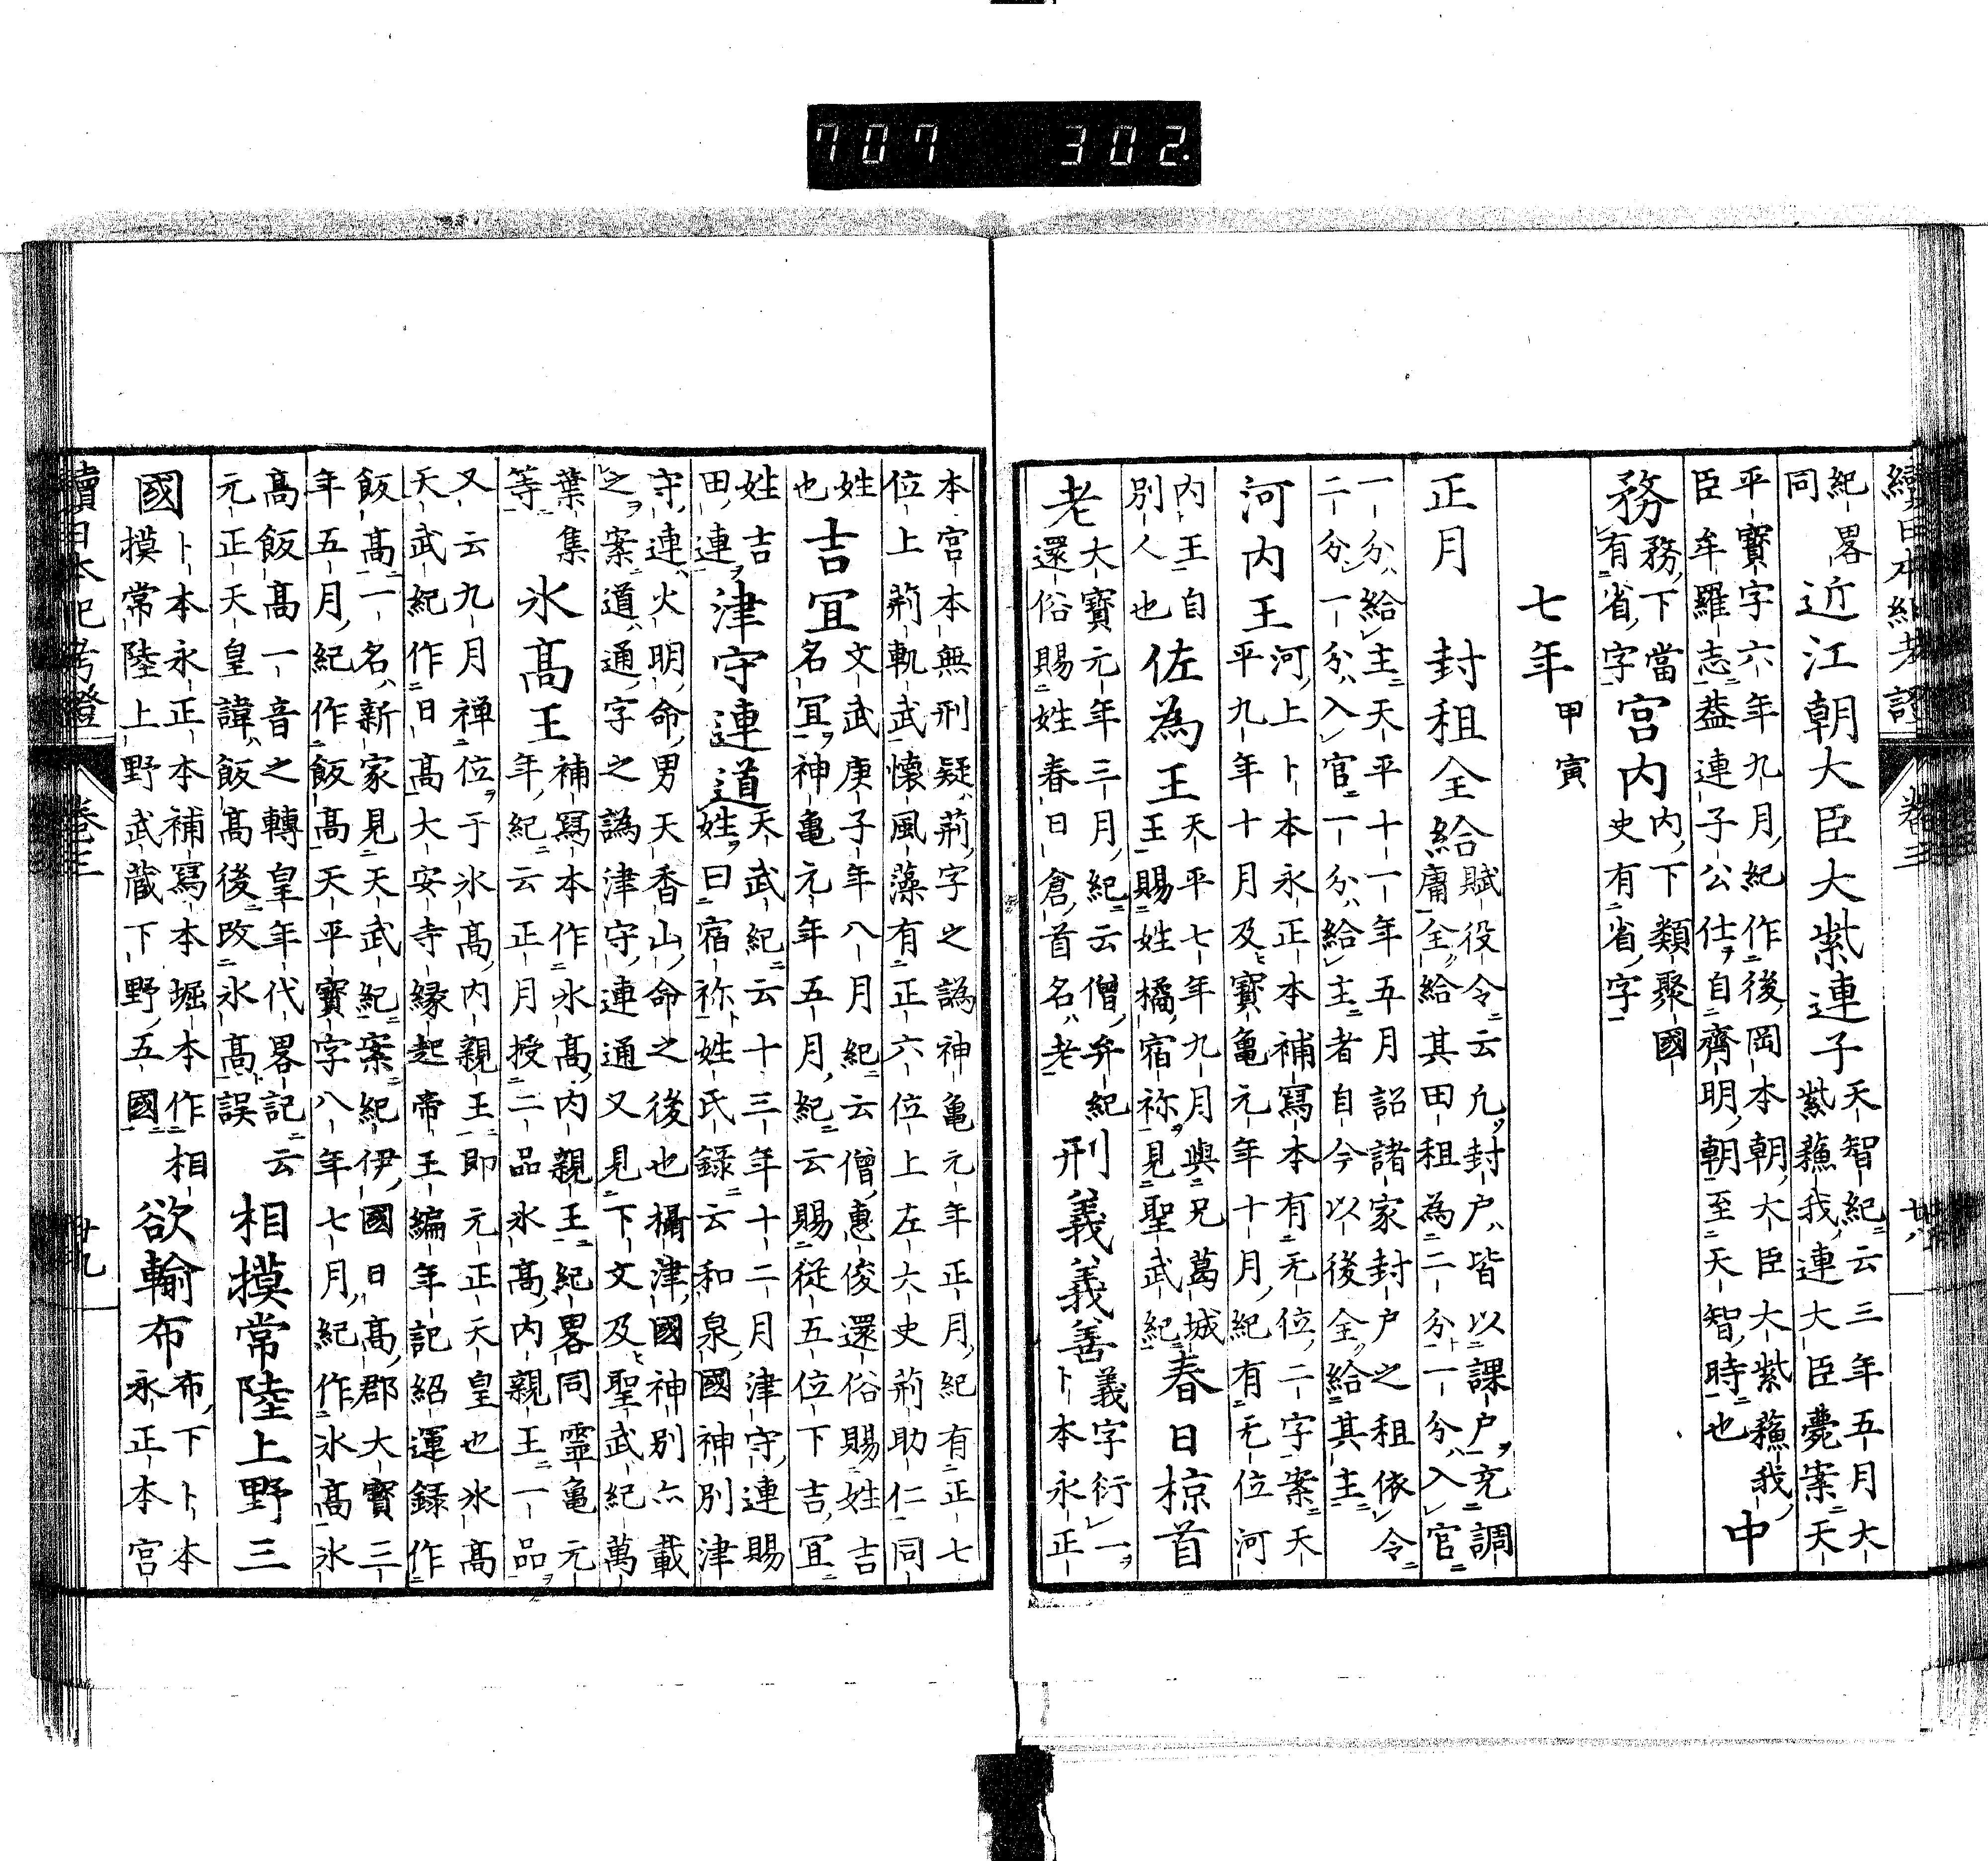 707 302.
續日本紀考證 卷三 廿八
紀畧同 近江朝大臣大紫連子 天智紀云三年五月大紫蘓我連大臣薨案天
平寳字六年九月紀作後岡本朝大臣大紫蘓我臣牟羅志葢連子公仕自齊明朝至天智時也 中
務 務下當有省字 宮内 内下類聚國史有省字
七年 甲寅
正月 封租全給 賦役令云凢封戸皆以課戸充調庸全給其田租為二分一分入官
一分給主天平十一年五月詔諸家封戸之租依令二分一分入官一分給主者自今以後全給其主
河内王 河上卜本永正本補寫本有无位二字案天平九年十月及寳龜元年十月紀有无位河
内王自別人也 佐為王 天平七年九月與兄葛城王賜姓橘宿祢見聖武紀 春日椋首
老 大寳元年三月紀云僧弁紀還俗賜姓春日倉首名老 刑義義善 義字衍一卜本永正
本宮本無刑疑荊字之譌神龜元年正月紀有正七位上荊軌武懐風藻有正六位上左大史荊助仁同
姓也 吉冝 文武庚子年八月紀云僧惠俊還俗賜姓吉名冝神龜元年五月紀云賜從五位下吉冝
姓吉田連 津守連道 天武紀云十三年十二月津守連賜姓曰宿祢姓氏録云和泉國神別津
守連火明命男天香山命之後也攝津國神別亦載之案道通字之譌津守連通又見下文及聖武紀萬
葉集等 氷髙王 補寫本作氷髙内親王紀畧同靈龜元年紀云正月授二品氷髙内親王一品
又云九月禅位于氷髙内親王即元正天皇也氷髙天武紀作日髙大安寺縁起帝王編年記紹運録作
飯髙一名新家見天武紀案紀伊國日髙郡大寳三年五月紀作飯髙天平寳字八年七月紀作氷髙氷
髙飯髙一音之轉皇年代畧記云元正天皇諱飯髙後改氷髙誤 相摸常陸上野三
國 卜本永正本補寫本堀本作相摸常陸上野武蔵下野五國 欲輸布 布下卜本永正本宮
續日本紀考證 卷三 廿九